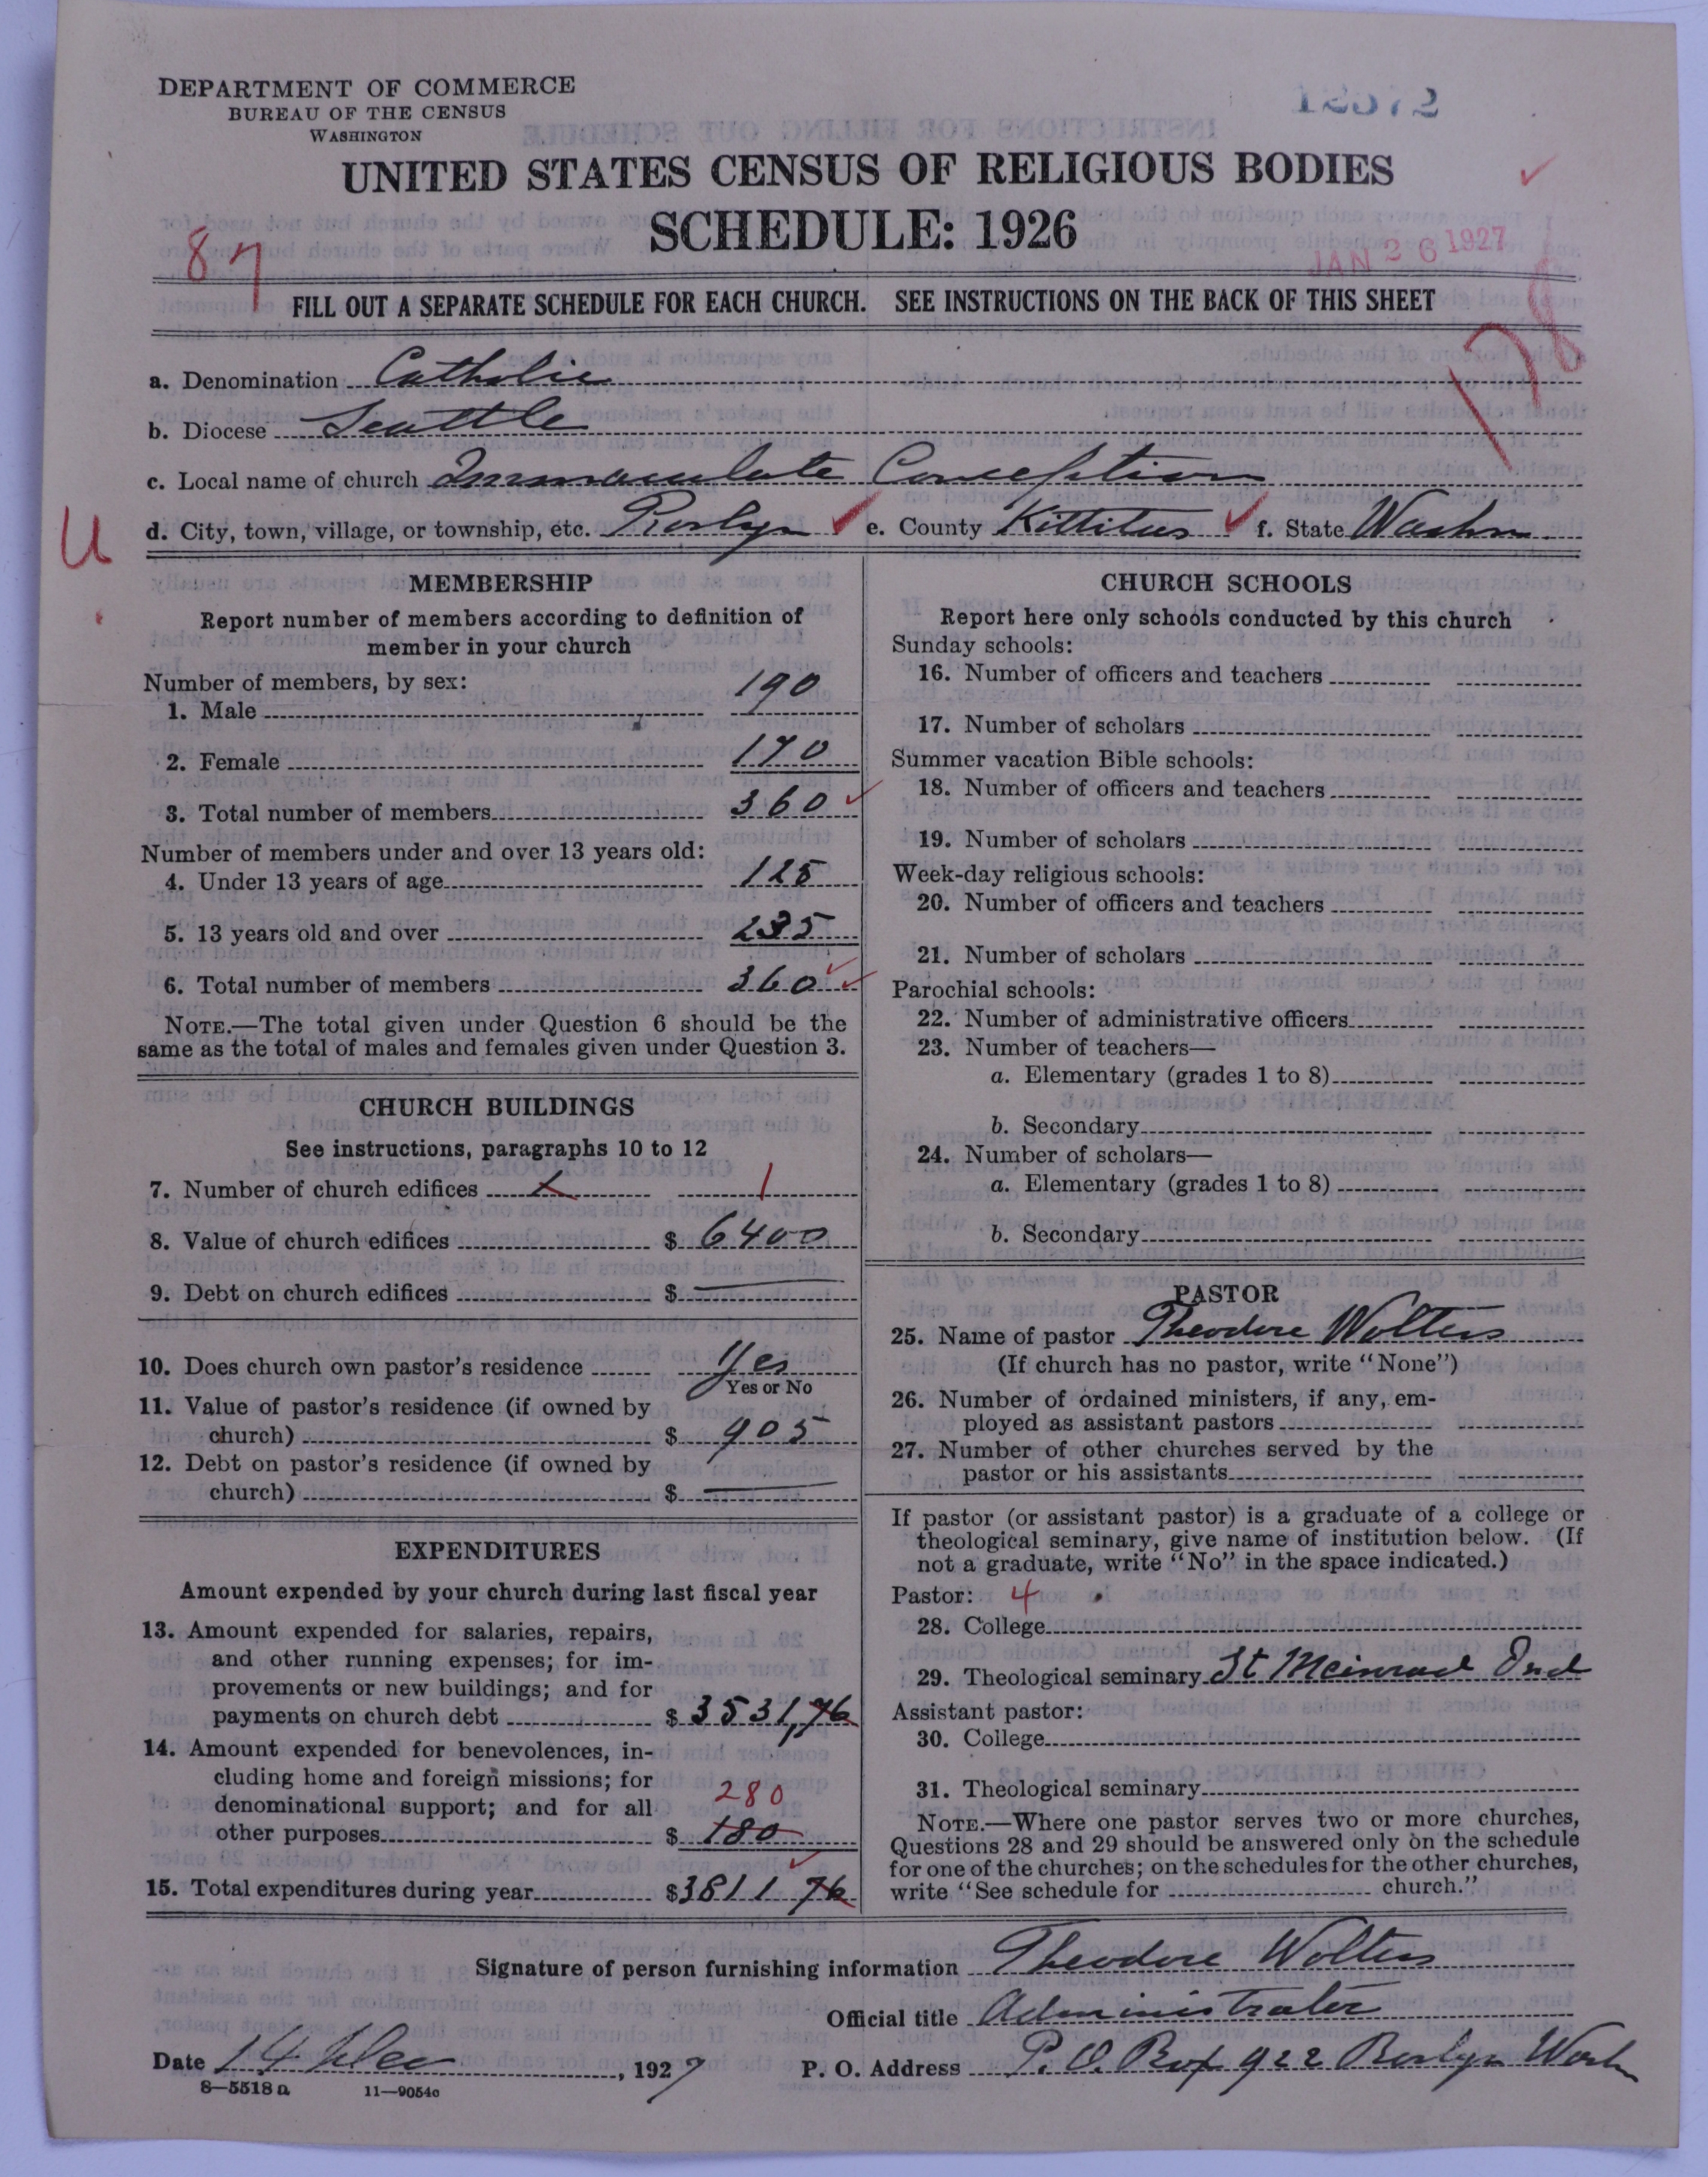 DEPARTMENT OF COMMERCE
BUREAU OF THE CENSUS
WASHINGTON
UNITED STATES CENSUS OF RELIGIOUS BODIES
SCHEDULE: 1926
JAN 26 1927
87
178
FILL OUT A SEPARATE SCHEDULE FOR EACH CHURCH. SEE INSTRUCTIONS ON THE BACK OF THIS SHEET
a. Denomination Catholic
b. Diocese Seattle
c. Local name of church Immaculate Conception
U
d. City, town, village, or township, etc. Roslyn e. County Kittitas f. State Washn
MEMBERSHIP
Report number of members according to definition of
member in your church
Number of members, by sex:
1. Male 190
2. Female 170
3. Total number of members 360
Number of members under and over 13 years old:
4. Under 13 years of age 125
5. 13 years old and over 235
6. Total number of members 360
NOTE.—The total given under Question 6 should be the
same as the total of males and females given under Question 3.
CHURCH BUILDINGS
See instructions, paragraphs 10 to 12
7. Number of church edifices 1
8. Value of church edifices $ 6400
9. Debt on church edifices $
10. Does church own pastor's residence Yes
Yes or No
11. Value of pastor's residence (if owned by
church) $ 905
12. Debt on pastor's residence (if owned by
church) $
EXPENDITURES
Amount expended by your church during last fiscal year
13. Amount expended for salaries, repairs,
and other running expenses; for im-
provements or new buildings; and for
payments on church debt $ 3531,76
14. Amount expended for benevolences, in-
cluding home and foreign missions; for
denominational support; and for all 280
other purposes $ 180
15. Total expenditures during year $3811 76
CHURCH SCHOOLS
Report here only schools conducted by this church
Sunday schools:
16. Number of officers and teachers
17. Number of scholars
Summer vacation Bible schools:
18. Number of officers and teachers
19. Number of scholars
Week-day religious schools:
20. Number of officers and teachers
21. Number of scholars
Parochial schools:
22. Number of administrative officers
23. Number of teachers—
a. Elementary (grades 1 to 8)
b. Secondary
24. Number of scholars—
a. Elementary (grades 1 to 8)
b. Secondary
PASTOR
25. Name of pastor Theodore Wolters
(If church has no pastor, write "None")
26. Number of ordained ministers, if any, em-
ployed as assistant pastors
27. Number of other churches served by the
pastor or his assistants
If pastor (or assistant pastor) is a graduate of a college or
theological seminary, give name of institution below. (If
not a graduate, write "No" in the space indicated.)
Pastor: 4
28. College
29. Theological seminary St Meinrad Ind
Assistant pastor:
30. College
31. Theological seminary
NOTE.—Where one pastor serves two or more churches,
Questions 28 and 29 should be answered only on the schedule
for one of the churches; on the schedules for the other churches,
write "See schedule for church."
Signature of person furnishing information Theodore Wolters
Official title Administrator
Date 14 Dec, 1927 P. O. Address P.O. Box 922 Roslyn Wash
8—5518 a 11—9054c